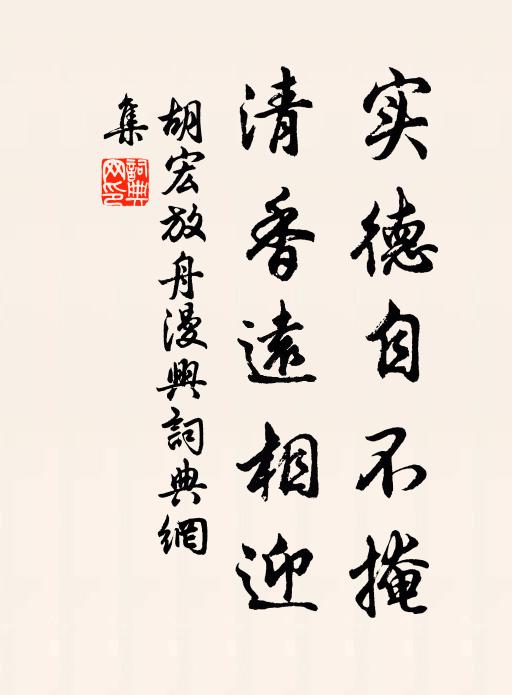 实德自不掩
清香遠相迎
胡宏放舟漫興詞典網
集
詞典
网印